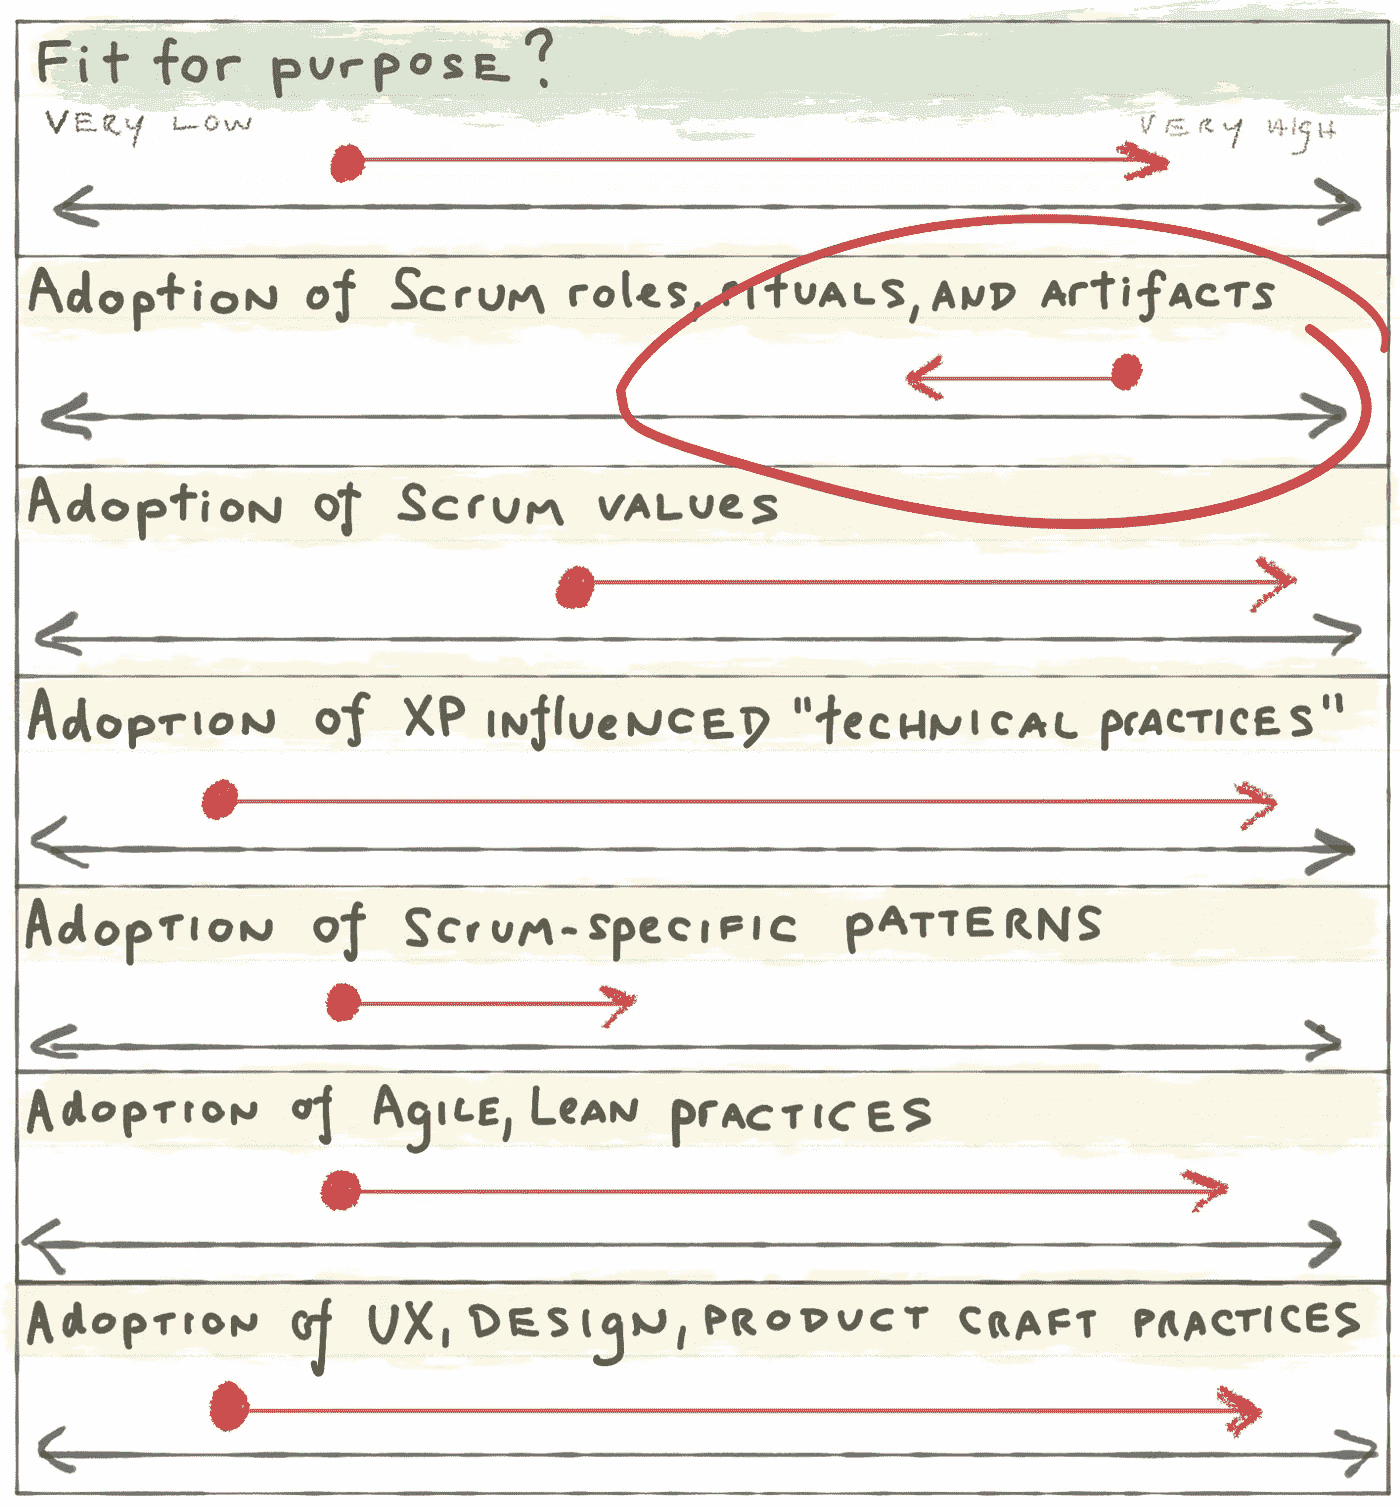 Fit for purpose?
VERY LOW
VERY HIGH
Adoption of Scrum roles, rituals, and artifacts
Adoption of Scrum values
Adoption of XP influenced "technical practices"
Adoption of Scrum-specific patterns
Adoption of Agile, Lean practices
Adoption of UX, Design, Product craft practices